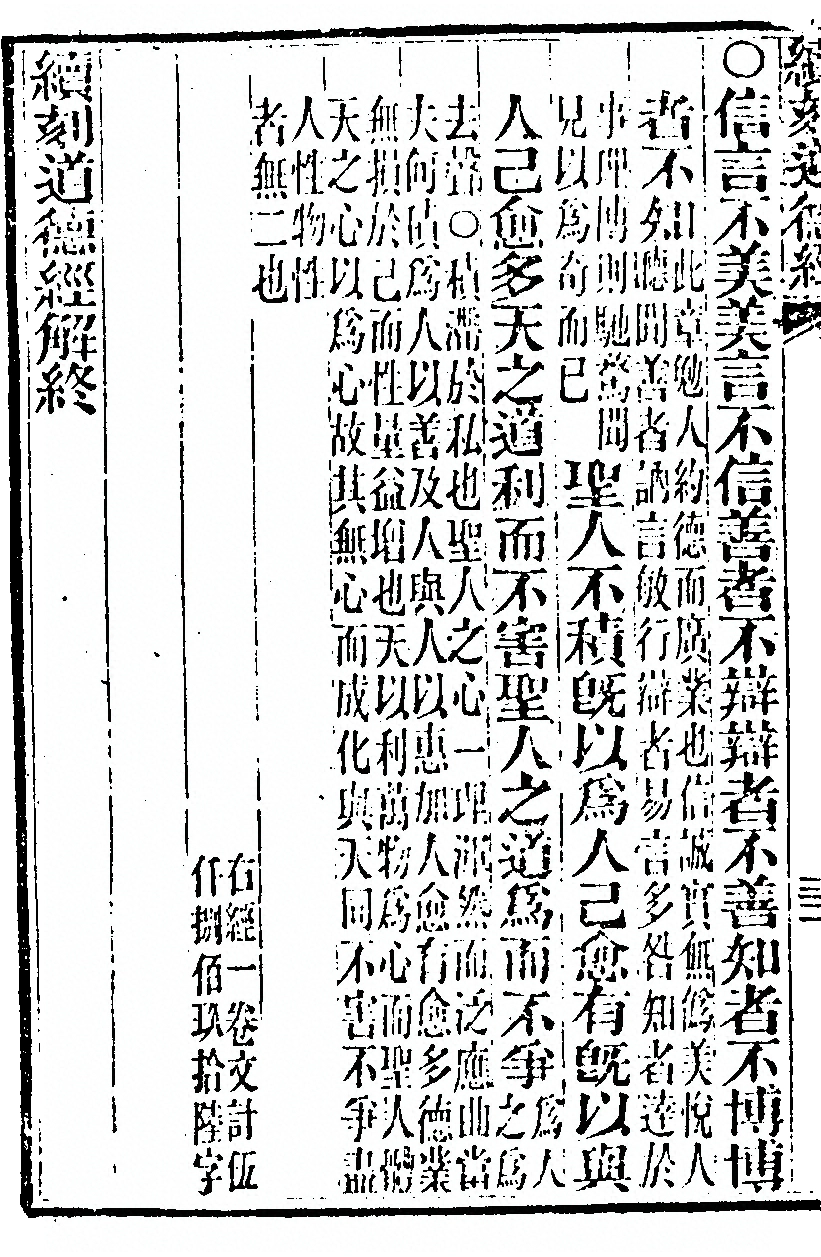 續刻道德經
○信言不美美言不信善者不辯辯者不善知者不博博
者不知
此章勉人約德而廣業也信誠實無僞美悅人
聽聞善者訥言敏行辯者易言多咎知者達於
事理博則馳騖聞
見以爲奇而已
聖人不積旣以爲人己愈有旣以與
人己愈多天之道利而不害聖人之道爲而不爭
爲人
之爲
去聲○積滯於私也聖人之心一理渾然而泛應曲當
夫何積爲人以善及人與人以惠加人愈有愈多德業
無損於己而性量益增也天以利萬物爲心而聖人體
天之心以爲心故其無心而成化與天同不害不爭盡
人性物性
者無二也
右經一卷文計伍
仟捌佰玖拾陸字
續刻道德經解終